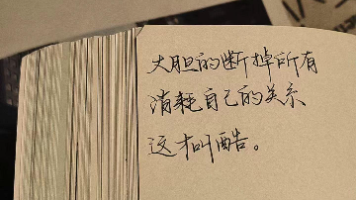 大胆的断掉所有
消耗自己的关系
这才叫酷。